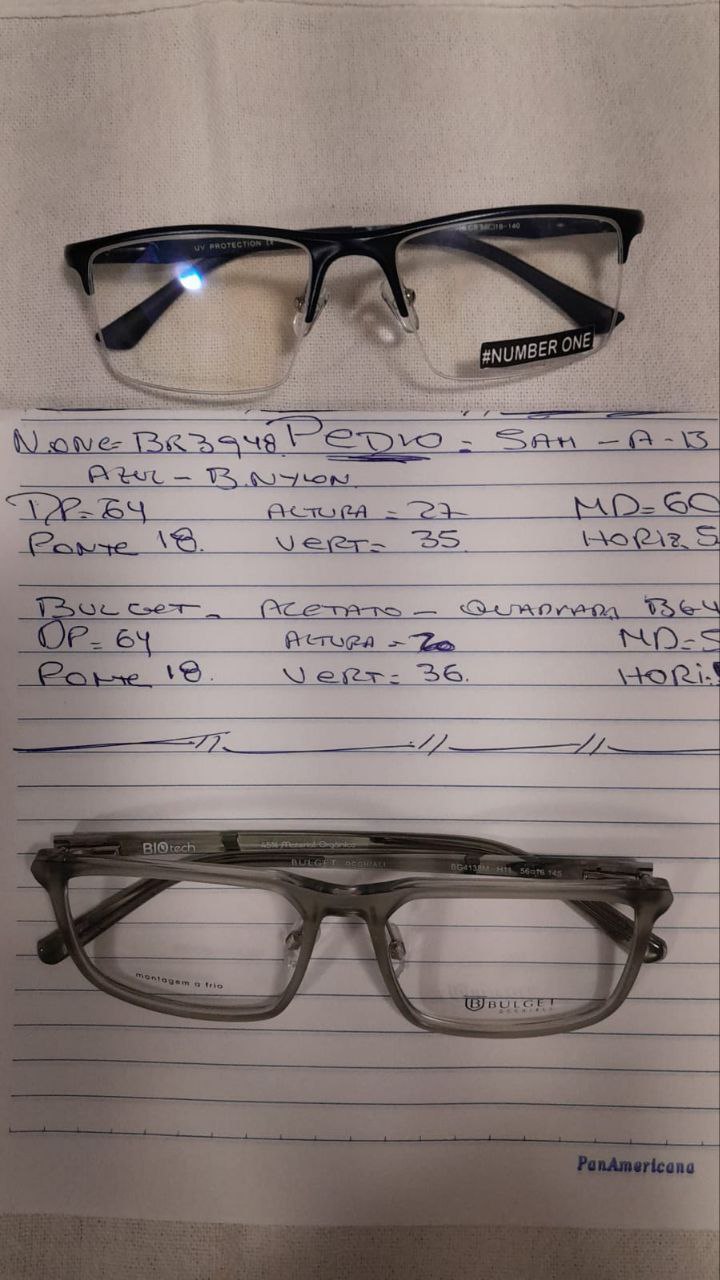 UV PROTECTION
18-140
#NUMBER ONE
N.ONE= BR3948 PEDRO = SAM - A-B
AZUL - B.NYLON.
DP= 64 ALTURA = 27 MD=60
PONTE 18. VERT= 35 HORIZ 5
BULGET - ACETATO - QUADRADA BG4
DP= 64 ALTURA = MD=5
PONTE 18. VERT= 36. HORI
BIOtech 45% Material Orgânico
BULGET OCCHIALI BG4138M H11 145
montagem a frio
B BULGET
OCCHIALI
PanAmericana